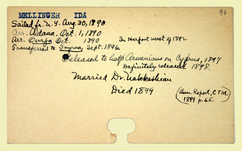 MELLINGER IDA
Sailed fr. N.Y. Aug 30, 1890
Arr. Adana, Oct. 1, 1890
Arr. Ourfa Oct. 1890 In Marfoot west of 1892
Transferred to Smyrna, Sept. 1896
Released to help Armenians on Cyprus, 1897
Definitely released 1898
Married Dr.
Died 1899
(Ann. Report, 1899 p. 65.)